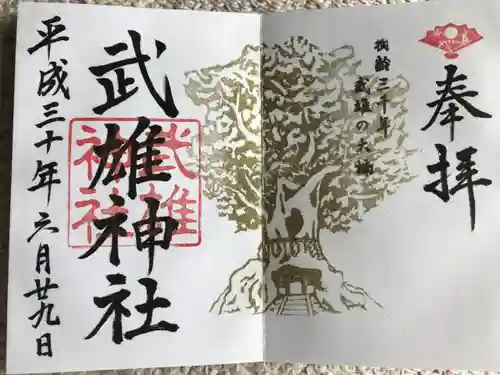 奉拝
御齢三千年
武雄の大楠
武雄神社
武雄神社
平成三十年六月廿九日